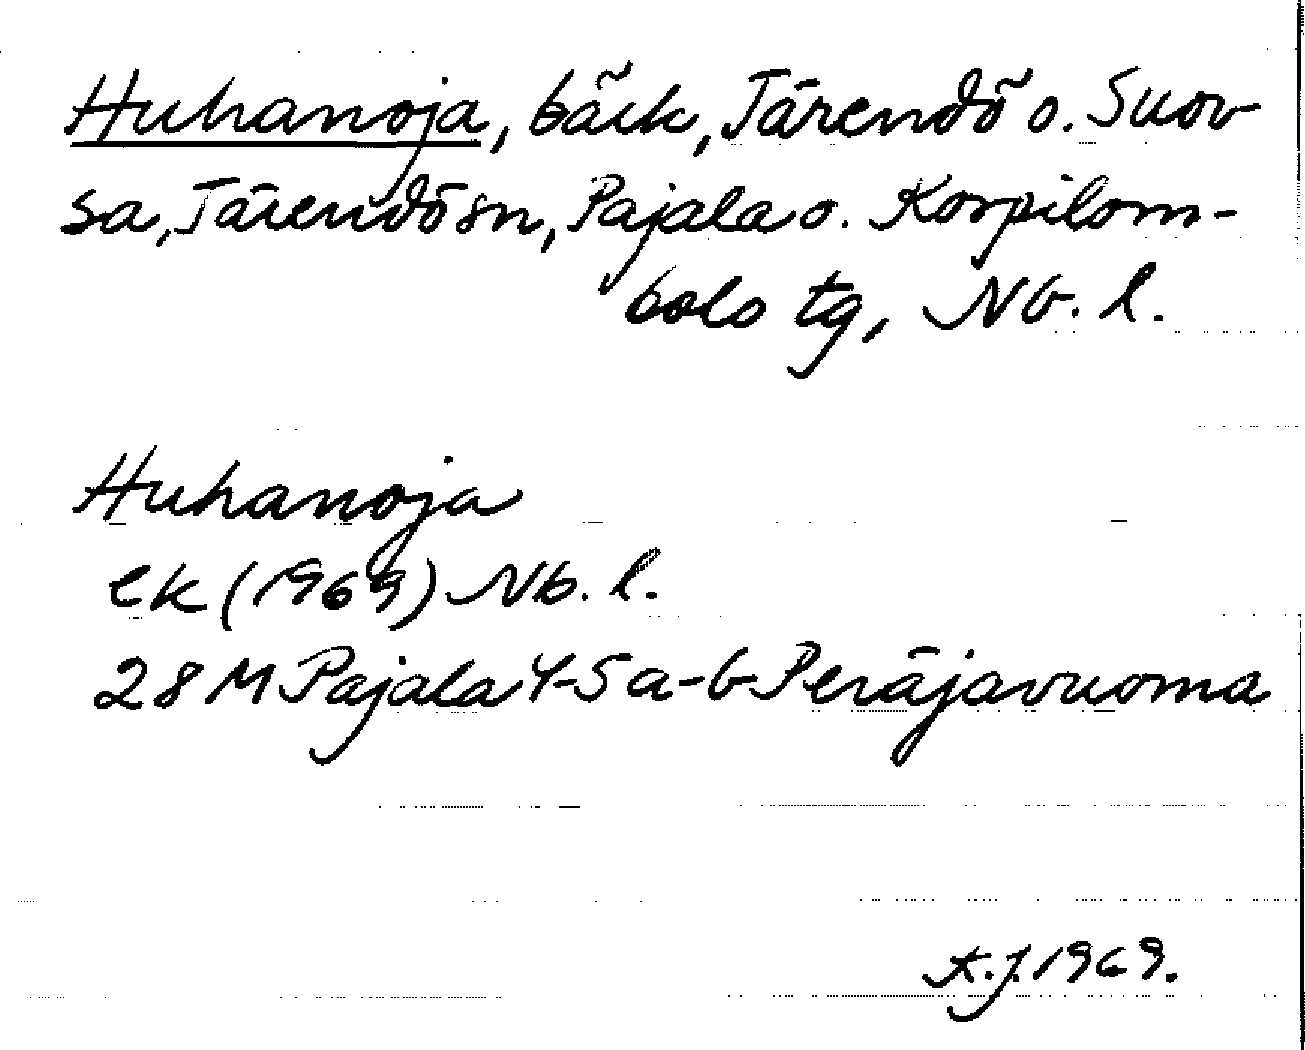 Huhanoja, bäck, Tärendö o. Suov-
sa, Tärendö sn, Pajala o. Korpilom-
bolo tg, Nb. l.
Huhanoja
ek (1969) Nb. l.
28 M Pajala 4-5 a-b Peräjavuoma
A.J. 1969.